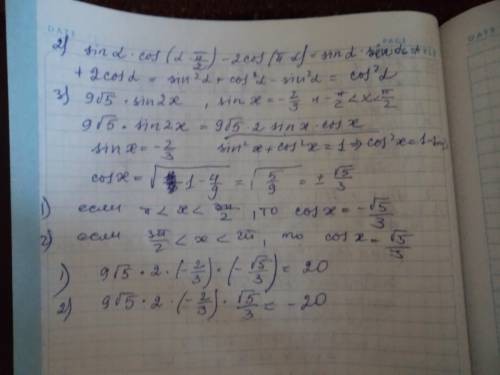 DATE
PAGE
2) sin α · cos(α - π/2) - 2cos(π - α) = sin α · sin α +
+ 2cos α = sin²α + cos²α - sin²α = cos²α
3) 9√5 · sin 2x, sin x = -2/3 и -π/2 < x < π/2
9√5 · sin 2x = 9√5 · 2 sin x · cos x
sin x = -2/3 sin²x + cos²x = 1 ⇒ cos²x = 1 -
cos x = √(1 - 4/9) = √(5/9) = ± √5/3
1) если π < x < 3π/2, то cos x = -√5/3
2) если 3π/2 < x < 2π, то cos x = √5/3
1) 9√5 · 2 · (-2/3) · (-√5/3) = 20
2) 9√5 · 2 · (-2/3) · √5/3 = -20